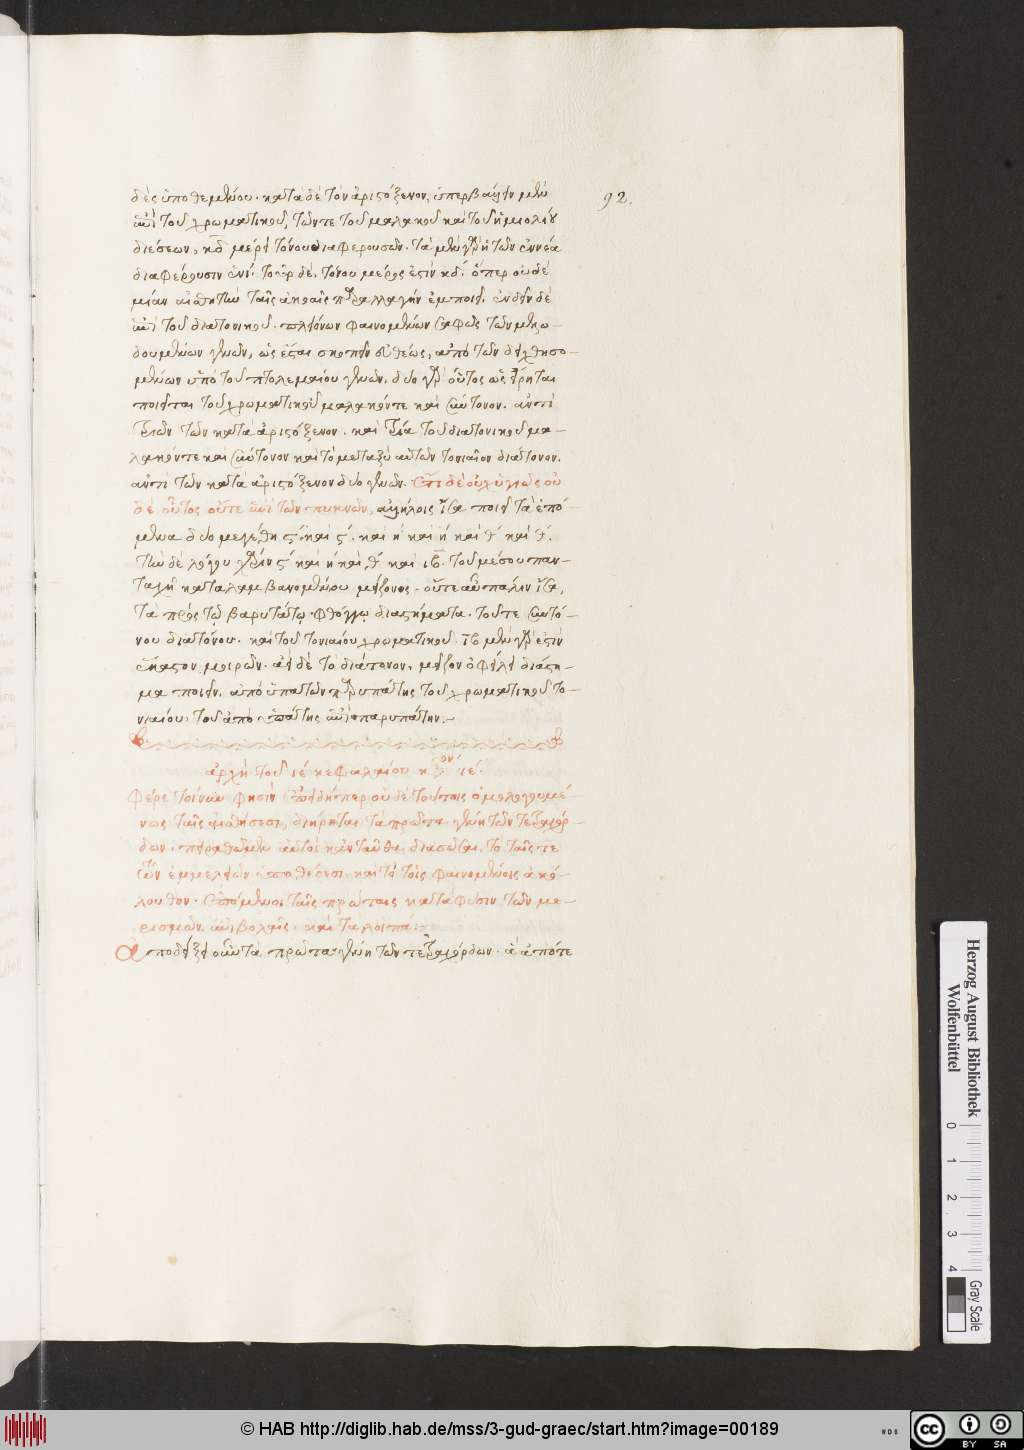 δὲς ὑποθεμένου. κατὰ δὲ τὸν ἀριστόξενον, ὑπερβαίνειν μὲν
92.
ἐπὶ τοῦ χρωματικοῦ, τῶν τε τοῦ μαλακοῦ καὶ τοῦ ἡμιολίου
διέσεων, κδ μέρει τόνου διαφερουσῶν. τὰ μὲν γὰρ ἢ τῶν ἐννέα
διαφέρουσιν ἑνί. τὸ γὰρ δὲ. τόνου μέρος ἐστὶν κδ. ὅπερ οὐδὲ
μίαν αἰσθητὴν ταῖς ἀκοαῖς παραλλαγὴν ἐμποιεῖ. ἐνδεῖν δὲ
ἐπὶ τοῦ διατονικοῦ. πλειόνων φαινομένων σαφῶς τῶν μελῳ-
δουμένων γενῶν, ὡς ἔσται σκοπεῖν εὐθέως, ἀπὸ τῶν δειχθησο-
μένων ὑπὸ τοῦ πτολεμαίου γενῶν. δύο γὰρ οὗτος ὡς εἴρηται
ποιεῖται τοῦ χρωματικοῦ μαλακόν τε καὶ σύντονον. ἀντὶ
τριῶν τῶν κατὰ ἀριστόξενον. καὶ τρία τοῦ διατονικοῦ μα-
λακόν τε καὶ σύντονον καὶ τὸ μεταξὺ αὐτῶν τονιαῖον διάτονον.
ἀντὶ τῶν κατὰ ἀριστόξενον δύο γενῶν. ἔτι δὲ οὐχ ὑγιῶς οὐ
δὲ οὗτος οὔτε ἐπὶ τῶν πυκνῶν, ἀλλήλοις ἴσα ποιεῖ τὰ ἑπό-
μενα δύο μεγέθη ς΄ καὶ ς΄. καὶ η΄ καὶ η΄ καὶ θ΄ καὶ θ΄.
τὴν δὲ λόγου χάριν ς΄ καὶ η καὶ, θ΄ καὶ ιβ. τοῦ μέσου παν-
ταχῆ καταλαμβανομένου μείζονος. οὔτε αὖ πάλιν ἴσα,
τὰ πρὸς τῷ βαρυτάτῳ φθόγγῳ διαστήματα. τοῦ τε συντό-
νου διατόνου. καὶ τοῦ τονιαίου χρωματικοῦ. ιβ μὲν γάρ ἐστιν
ἑκάστου μοιρῶν. ἀεὶ δὲ τὸ διάτονον, μεῖζον ὀφείλει διάστη-
μα ποιεῖν. ἀπὸ ὑπατῶν παρυπάτης τοῦ χρωματικοῦ το-
νιαίου, τοῦ ἀπὸ ὑπάτης ἐπὶ παρυπάτην.
ἀρχὴ τοῦ ιέ κεφαλαίου κείμενον ιέ.
Φέρε τοίνυν φησὶν ἐπειδήπερ οὐδὲ τούτοις ὁμολογουμέ-
νως ταῖς αἰσθήσεσι, διῄρηται τὰ πρῶτα γένη τῶν τετραχόρ-
δων. πειραθῶμεν αὐτοὶ κἀνταῦθα διασῶσαι. τὸ ταῖς τε
τῶν ἐμμελειῶν ὑποθέσεσι καὶ τὸ τοῖς φαινομένοις ἀκό-
λουθον. ἑπόμενοι ταῖς πρώταις κατὰ φύσιν τῶν με-
ρισμῶν ἐπιβολαῖς. καὶ τὰ λοιπά:
Αποδείξει οὖν τὰ πρῶτα γένη τῶν τετραχόρδων. ἃ ἅποτε
Herzog August Bibliothek
Wolfenbüttel
0 1 2 3 4
Gray Scale
© HAB http://diglib.hab.de/mss/3-gud-graec/start.htm?image=00189
cc BY SA